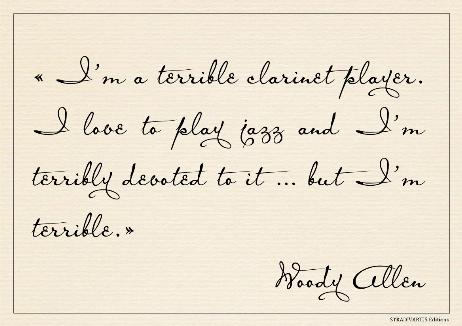 « I'm a terrible clarinet player.
I love to play jazz and I'm
terribly devoted to it ... but I'm
terrible.»
Woody Allen
STRADIVARIUS Editions